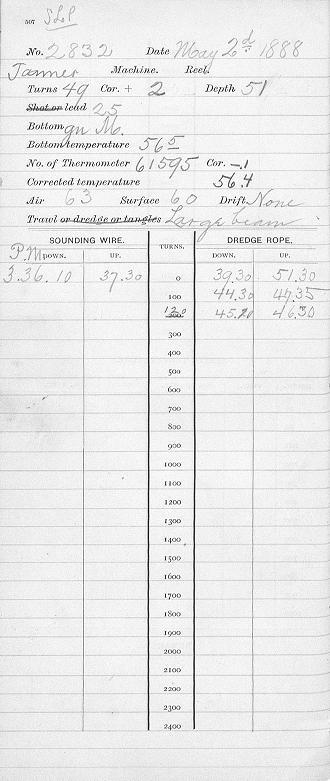 507 SLP
No. 2832 Date May 2d. 1888
Tanner Machine. Reel.
Turns 49 Cor. + 2 Depth 51
Shot or lead 25
Bottom gn M.
Bottom temperature 565
No. of Thermometer 61595 Cor. -.1
Corrected temperature 56.4
Air 63 Surface 60 Drift None
Trawl or dredge or tangles Large beam
SOUNDING WIRE. TURNS. DREDGE ROPE.
P.M. DOWN. UP. DOWN. UP.
3.36.10 37.30 0 39.30 51.30
100 44.30 47.35
120 200 45.20 46.30
300
400
500
600
700
800
900
1000
1100
1200
1300
1400
1500
1600
1700
1800
1900
2000
2100
2200
2300
2400